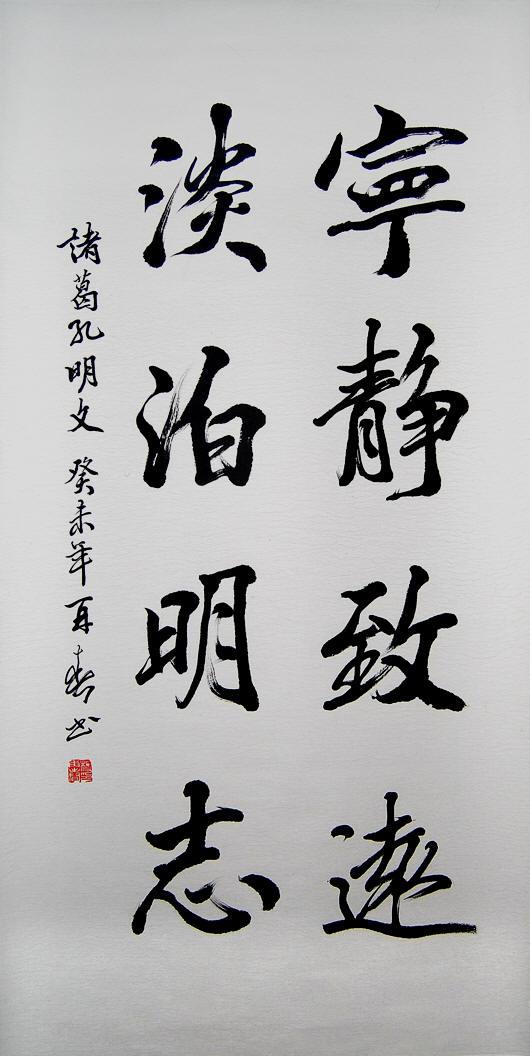 寧静致遠
淡泊明志
諸葛孔明文 癸未年 再春书